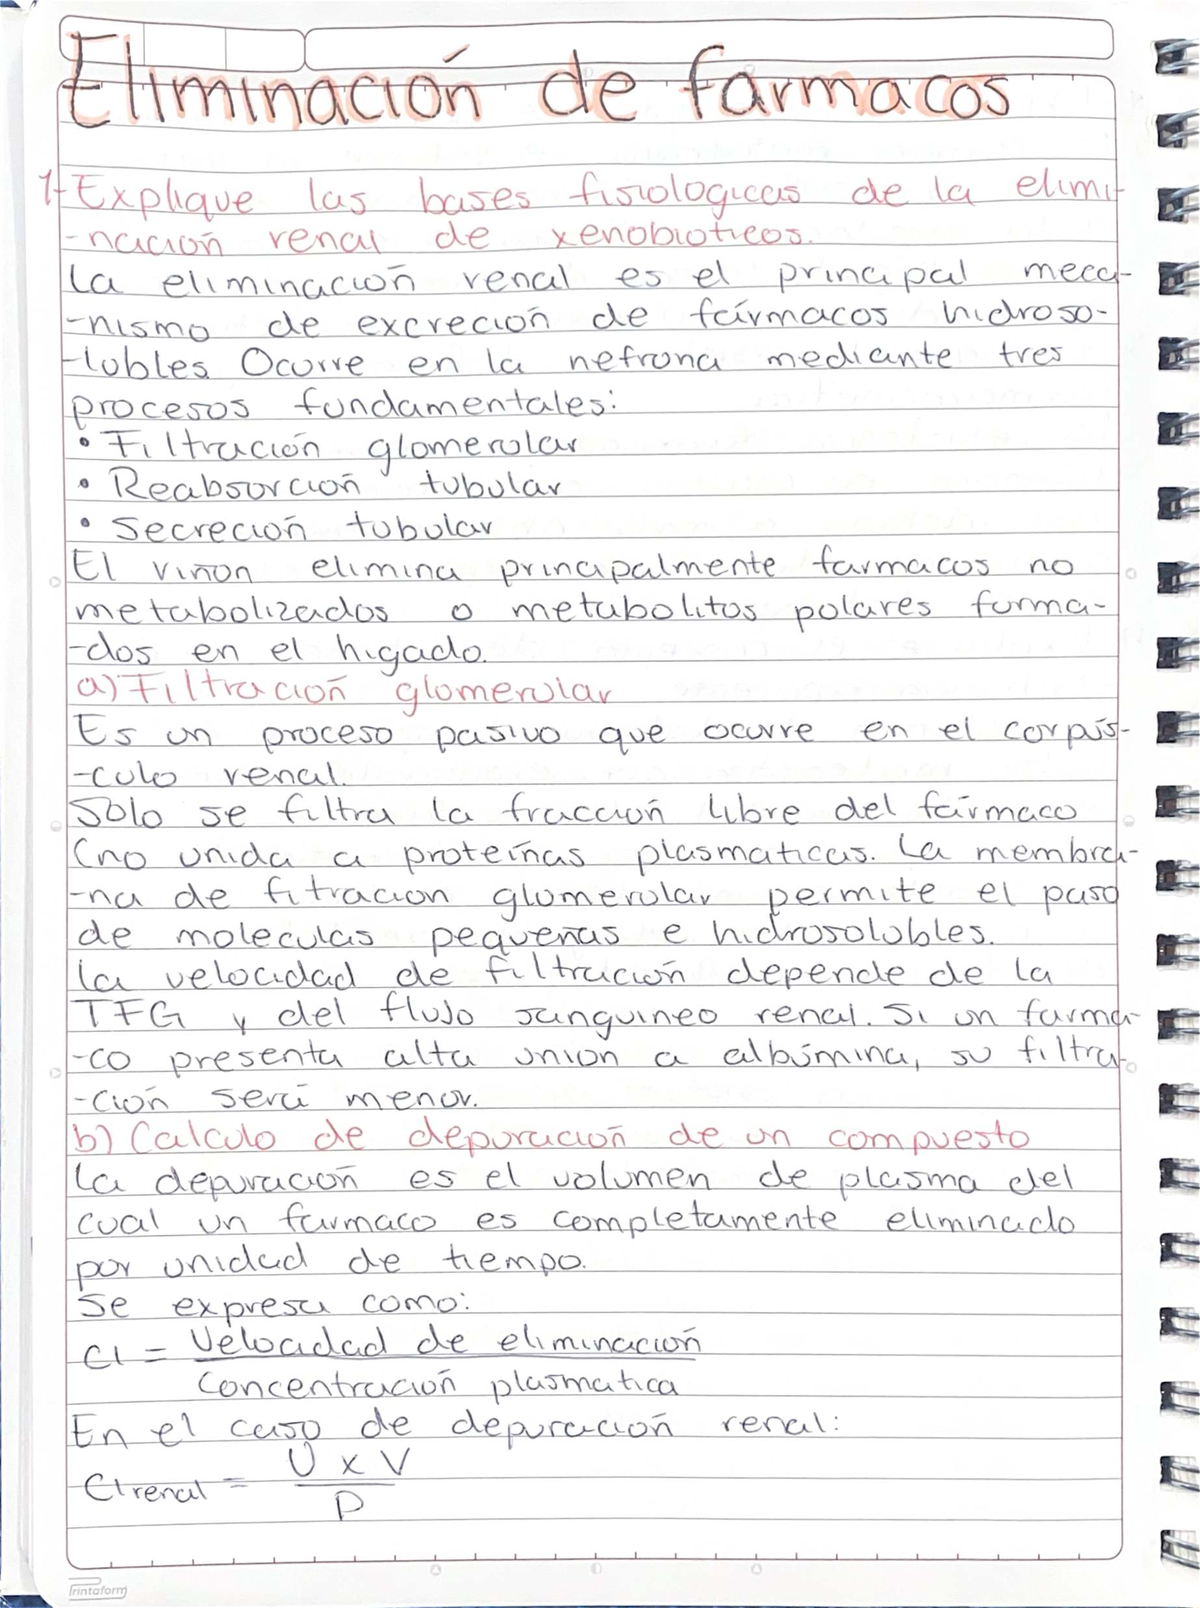 Eliminación de farmacos
1- Explique las bases fisiologicas de la elimi-
-nación renal de xenobioticos.
La eliminación renal es el principal meca-
-nismo de excreción de fármacos hidroso-
-lubles. Ocurre en la nefrona mediante tres
procesos fundamentales:
• Filtración glomerular
• Reabsorción tubular
• Secreción tubular
El riñon elimina principalmente farmacos no
metabolizados o metabolitos polares forma-
-dos en el higado.
a) Filtración glomerular
Es un proceso pasivo que ocurre en el corpús-
-culo renal.
Solo se filtra la fracción libre del fármaco
(no unida a proteínas plasmaticas. La membra-
-na de fitracion glomerular permite el paso
de moleculas pequeñas e hidrosolubles.
La velocidad de filtración depende de la
TFG y del flujo sanguineo renal. Si un farma-
-co presenta alta union a albúmina, su filtra-
-ción será menor.
b) Calculo de depuración de un compuesto
La depuración es el volumen de plasma del
cual un farmaco es completamente eliminado
por unidad de tiempo.
Se expresa como:
Cl = Velocidad de eliminación
Concentración plasmatica
En el caso de depuración renal:
Cl renal = U x V
P
Printaform